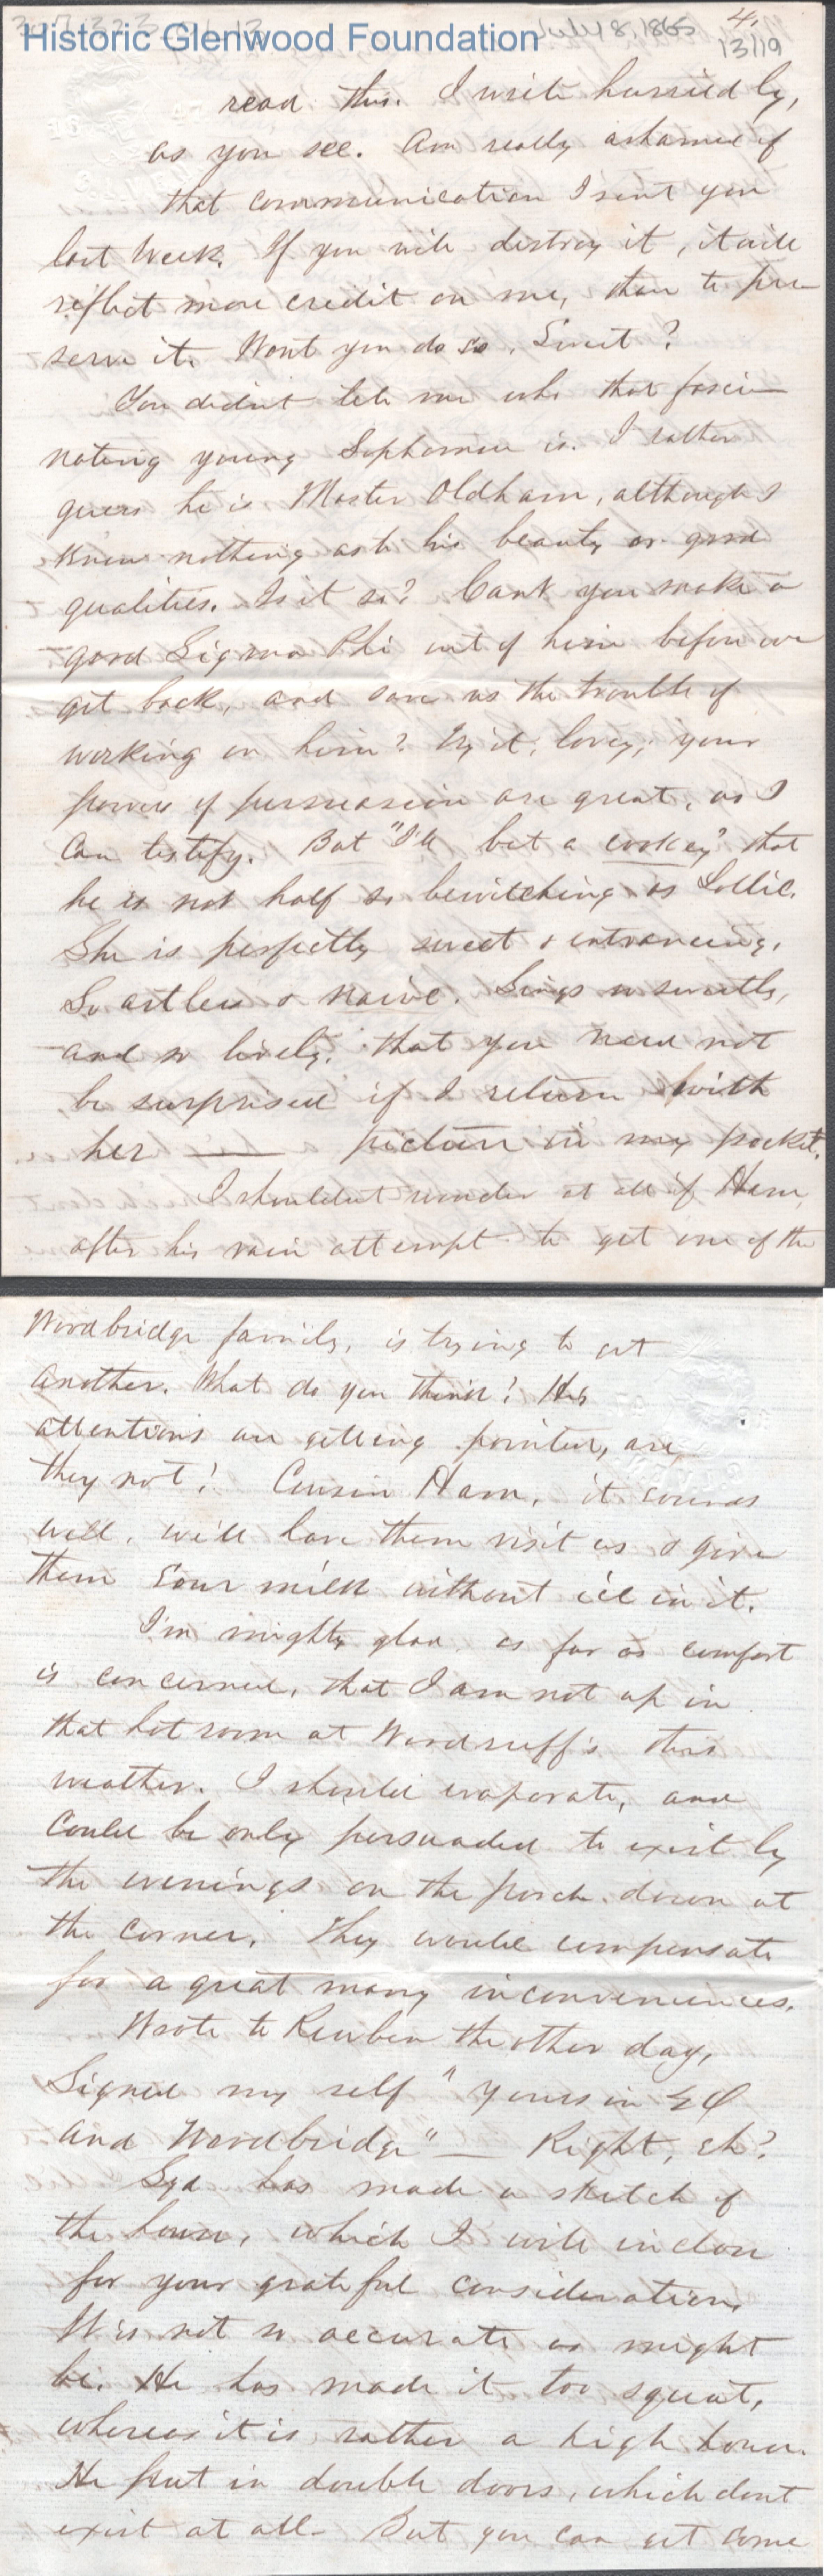 Historic Glenwood Foundation
July 8, 1865
4.
13/19
read this. I write hurriedly,
as you see. Am really ashamed of
that communication I sent you
last Week. If you will destroy it, it will
reflect more credit on me, than to pre-
serve it. Wont you do so, Sweet?
You didn't tell me who that fasci-
nating young Sophomore is. I rather
guess he is Master Oldham, although I
know nothing as to his beauty or good
qualities. Is it so? Cant you make a
good Sigma Phi out of him before we
get back, and save us the trouble of
working on him? Try it, lovey, your
powers of persuasion are great, as I
can testify. But "I'll bet a cookey" that
he is not half so bewitching as Lollie.
She is perfectly sweet & entrancing.
So artless & naive. Sings so sweetly,
and so lively, that you need not
be surprised if I return with
her —— picture in my pocket.
I shouldnt wonder at all if Ham,
after his vain attempt to get one of the
Woodbridge family, is trying to get
another. What do you think? His
attentions are getting pointed, are
they not! Cousin Ham, it sounds
well. We'll have them visit us & give
them Sour milk without ice in it.
I'm mighty glad, as far as comfort
is concerned, that I am not up in
that hot room at Woodruff's this
weather. I should evaporate, and
could be only persuaded to exist by
the evenings on the porch down at
the corner. They would compensate
for a great many inconveniences.
Wrote to Reuben the other day,
Signed my self "Yours in ΣΦ
and Woodbridge" — Right, eh?
has made a sketch of
the house, which I will inclose
for your grateful consideration.
It is not so accurate as might
be. He has made it too squat,
whereas it is rather a high house.
He put in double doors, which dont
exist at all. But you can get some